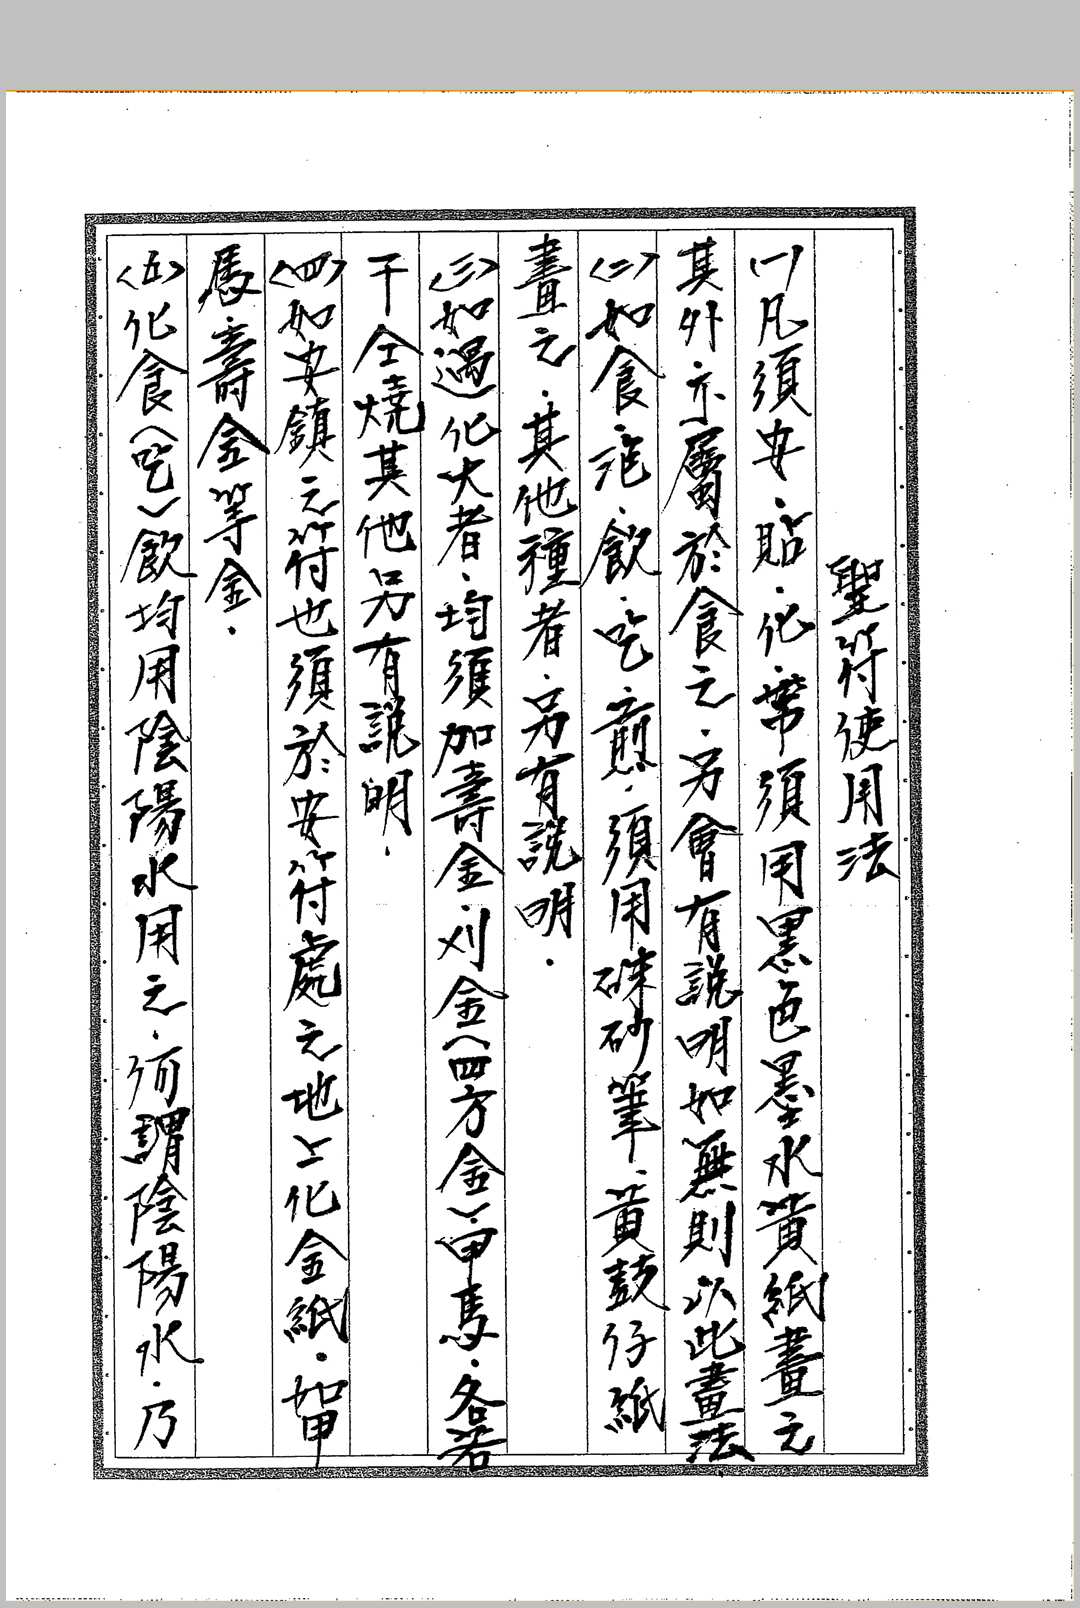 聖符使用法
(一)凡須安、貼、化、帶須用黑色墨水黃紙畫之
其外亦屬於食之、另會有說明如無則以此畫法
(二)如食、泡、飲、吃、煎、須用硃砂筆、黃鼓仔紙
畫之、其他種者、另有說明.
(三)如遇化火者、均須加壽金、刈金(四方金)、甲馬、各若
干仝燒其他另有說明.
(四)如安鎮之符也須於安符處之地上化金紙、如甲
馬、壽金等金.
(五)化食(吃)飲均用陰陽水用之、何謂陰陽水、乃